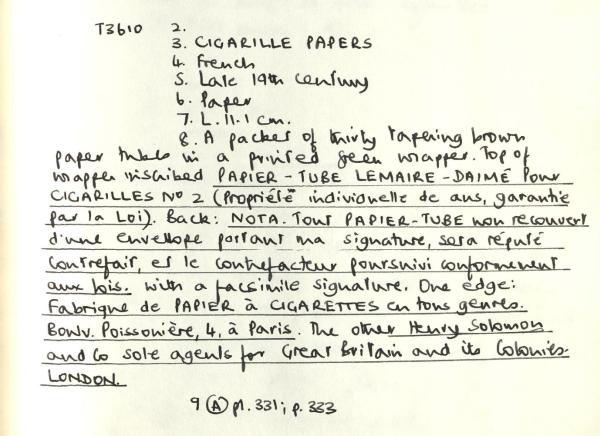 T3610 2.
3. CIGARILLE PAPERS
4. French
5. Late 19th century
6. Paper
7. L. 11.1 cm.
8. A packet of thirty tapering brown
paper tubes in a printed green wrapper. Top of
wrapper inscribed PAPIER-TUBE LEMAIRE-DAIMÉ Pour
CIGARILLES No 2 (Propriété individuelle de ans, garantie
par la Loi). Back: NOTA. Tout PAPIER-TUBE non recouvert
d'une envelope portant ma signature, sera réputé
Contrefait, et le contrefacteur poursuivi conformement
aux lois. with a facsimile signature. One edge:
Fabrique de PAPIER À CIGARETTES en tous genres.
Boulv. Poissonière, 4, à Paris. The other Henry Solomon
and Co sole agents for Great Britain and its Colonies.
LONDON.
9 (A) pl. 331; p. 333